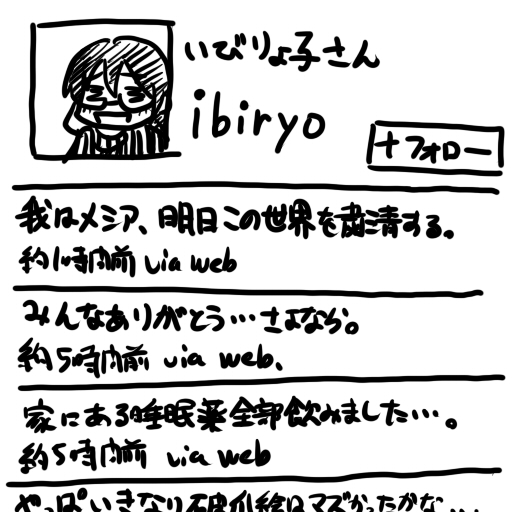 いびりょ子さん
ibiryo
+フォロー
我はメシア、明日この世界を粛清する。
約1時間前 via web
みんなありがとう…さよなら。
約5時間前 via web.
家にある睡眠薬全部飲みました…。
約5時間前 via web
やっぱいきなり破瓜絵はマズかったかな…